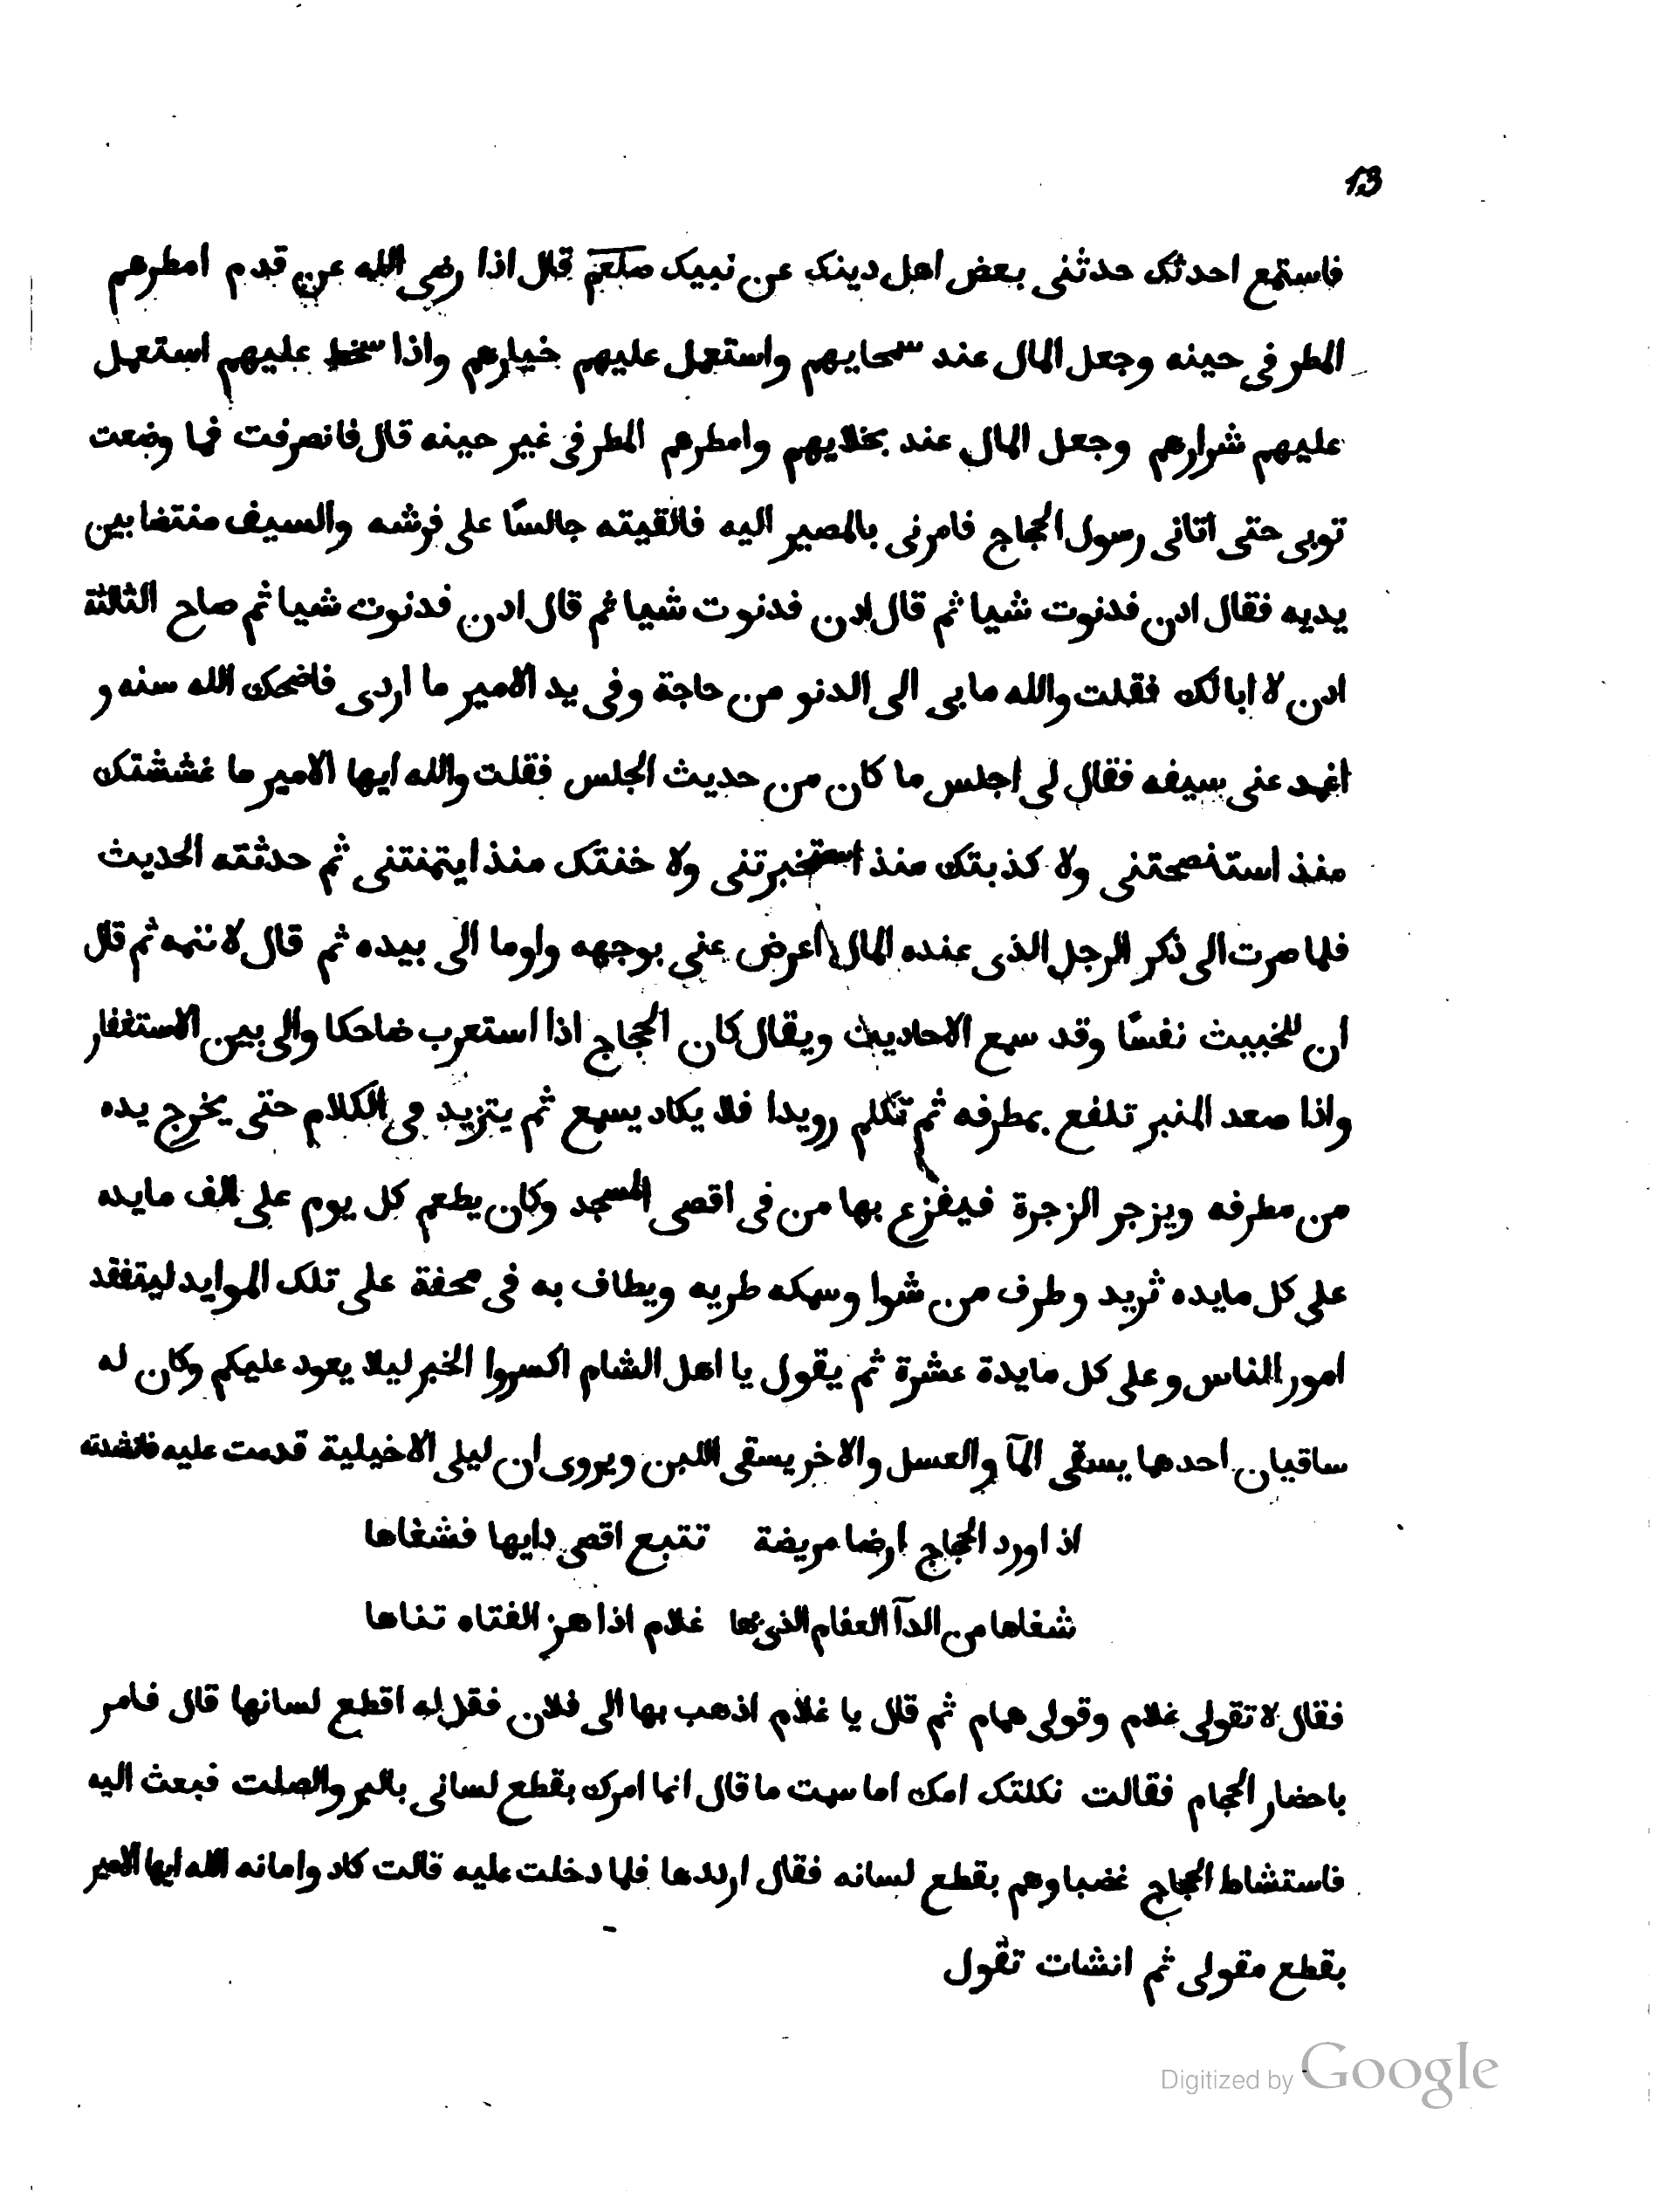 13
فاستمع احدثك حدثنى بعض اهل دينك عن نبيك صلعم قال اذا رضى الله عن قدم امطرهم
المطر فى حينه وجعل المال عند سمحايهم واستعمل عليهم خيارهم واذا سخط عليهم استعمل
عليهم شرارهم وجعل المال عند بخلايهم وامطرهم المطر فى غير حينه قال فانصرفت فما وضعت
توبى حتى اتانى رسول الحجاج فامرنى بالمصير اليه فالقيته جالسًا على فرشه والسيف منتضا بين
يديه فقال ادن فدنوت شيا ثم قال ادن فدنوت شيا ثم قال ادن فدنوت شيا ثم صاح الثالثة
ادن لا ابا لك فقلت والله ما بى الى الدنو من حاجة وفى يد الامير ما ارى فاضحك الله سنه و
اغمد عنى سيفه فقال لى اجلس ما كان من حديث الجلس فقلت والله ايها الامير ما غششتك
منذ استنصحتنى ولا كذبتك منذ استخبرتنى ولا خنتك منذ ايتمنتنى ثم حدثته الحديث
فلما صرت الى ذكر الرجل الذى عنده المال اعرض عنى بوجهه واوما الى بيده ثم قال لا تسمه ثم قال
ان للخبيث نفسًا وقد سمع الاحاديث ويقال كان الحجاج اذا استعرب ضاحكا والى بين الاستغفار
واذا صعد المنبر تلفع بمطرفه ثم تكلم رويدا فلا يكاد يسمع ثم يتزيد فى الكلام حتى يخرج يده
من مطرفه ويزجر الزجرة فيفزع بها من فى اقصى المسجد وكان يطعم كل يوم على الف مايده
على كل مايده ثريد وطرف من شوا وسمكه طريه ويطاف به فى محفة على تلك الموايد ليتفقد
امور الناس وعلى كل مايدة عشرة ثم يقول يا اهل الشام اكسروا الخبر ليلا يعود عليكم وكان له
ساقيان احدهما يسقى المآ والعسل والاخر يسقى اللبن ويروى ان ليلى الاخيلية قدمت عليه فانشدته
اذا ورد الحجاج ارضا مريضة تتبع اقصى دايها فشفاها
شفاها من الدآ العقام الذى بها غلام اذا هز الفتاه تناها
فقال لا تقولى غلام وقولى همام ثم قال يا غلام اذهب بها الى فلان فقل له اقطع لسانها قال فامر
باحضار الحجام فقالت نكلتك امك اما سمت ما قال انما امرك بقطع لسانى بالبر والصلت فبعث اليه
فاستشاط الحجاج غضبا وهم بقطع لسانه فقال ارددها فلما دخلت عليه قالت كاد وامانه الله ايها الامير
بقطع مقولى ثم انشات تقول
Digitized by Google